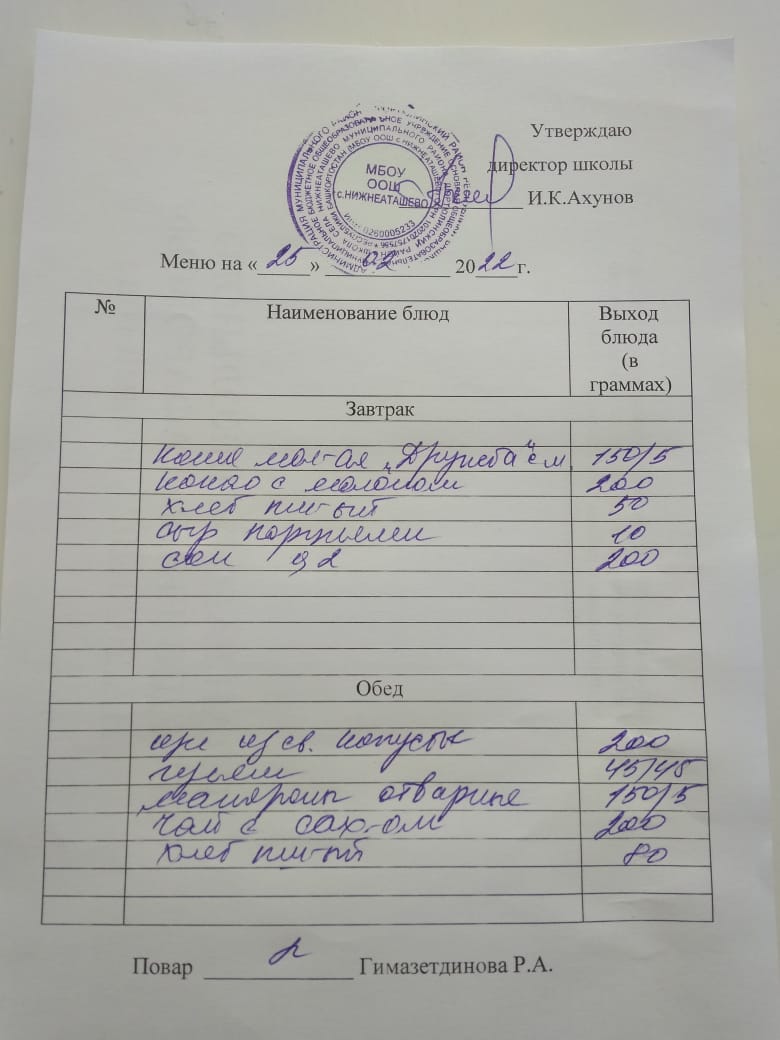 Утверждаю
директор школы
И.К.Ахунов
МБОУ
ООШ
с.НИЖНЕАТАШЕВО
ИНН 0260005233
Меню на «25» 02 2022г.
№ Наименование блюд Выход
блюда
(в
граммах)
Завтрак
каша мол-ая „Дружба" с м 150/5
какао с молоком 200
хлеб пш-ый 50
сыр порц 10
сок 200
Обед
щи из св. капусты 200
гуляш 45/45
макароны отварные 150/5
чай с сах-ом 200
хлеб пш-ый 80
Повар Гимазетдинова Р.А.